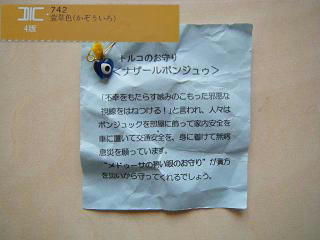 742
萱草色(かぞういろ)
4版
トルコのお守り
<ナザールボンジュゥ>
「不幸をもたらす妬みのこもった邪悪な
視線をはねつける!」と言われ、人々は
ボンジュックを部屋に飾って家内安全を
車に置いて交通安全を、身に着けて無病
息災を願っています。
“メドゥーサの青い眼のお守り”が貴方
を災いから守ってくれるでしょう。